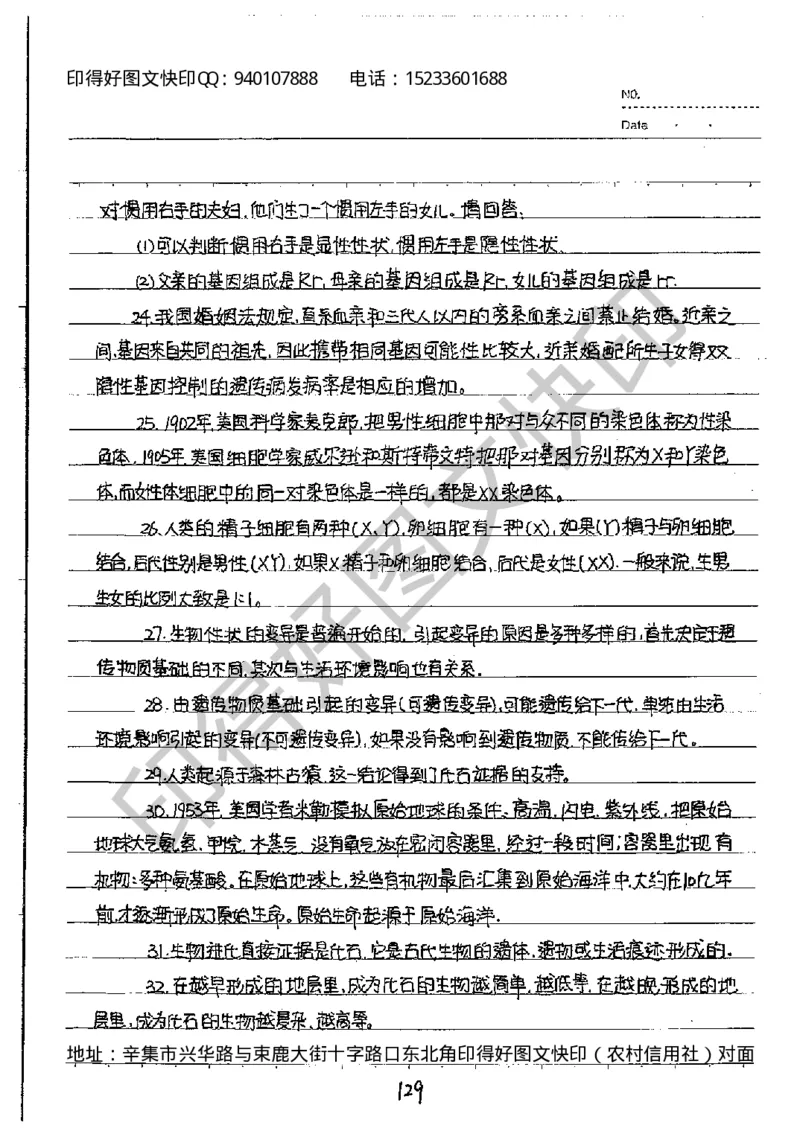 印得好图文快印QQ：940107888　　电话：15233601688
NO.
Date
对惯用右手的夫妇，他们生了一个惯用左手的女儿。请回答：
(1)可以判断惯用右手是显性性状，惯用左手是隐性性状、
(2)父亲的基因组成是Rr，母亲的基因组成是Rr，女儿的基因组成是rr.
24.我国婚姻法规定，直系血亲和三代人以内的旁系血亲之间禁止结婚。近亲之
间，基因来自共同的祖先，因此携带相同基因可能性比较大，近亲婚配所生子女得双
隐性基因控制的遗传病发病率是相应的增加。
25. 1902年，美国科学家麦克郎，把男性细胞中那对与众不同的染色体称为性染
色体.1905年，美国细胞学家威尔逊和斯特蒂文特把那对基因分别称为X和Y染色
体，而女性体细胞中的同一对染色体是一样的，都是XX染色体。
26.人类的精子细胞有两种(X、Y)，卵细胞有一种(X)，如果(Y)精子与卵细胞
结合，后代性别是男性(XY)，如果X精子和卵细胞结合，后代是女性(XX).一般来说，生男
生女的比例大致是1:1。
27.生物性状的变异是普遍开始的，引起变异的原因是多种多样的，首先决定于遗
传物质基础的不同，其次与生活环境影响也有关系.
28.由遗传物质基础引起的变异(可遗传变异)，可能遗传给下一代，单纯由生活
环境影响引起的变异(不可遗传变异)，如果没有影响到遗传物质，不能传给下一代。
29.人类起源于森林古猿，这一结论得到了化石证据的支持。
30.1953年，美国学者米勒模拟原始地球的条件。高温，闪电，紫外线，把原始
地球大气氨、氢、甲烷，水蒸气，没有氧气放在密闭容器里，经过一段时间；容器里出现有
机物：多种氨基酸。在原始地球上，这些有机物最后汇集到原始海洋中，大约在10亿年
前，才逐渐形成了原始生命。原始生命起源于原始海洋.
31.生物进化直接证据是化石，它是古代生物的遗体，遗物或生活痕迹形成的。
32.在越早形成的地层里，成为化石的生物越简单，越低等，在越晚形成的地
层里，成为化石的生物越复杂、越高等。
地址：辛集市兴华路与束鹿大街十字路口东北角印得好图文快印（农村信用社）对面
129
印得好图文快印